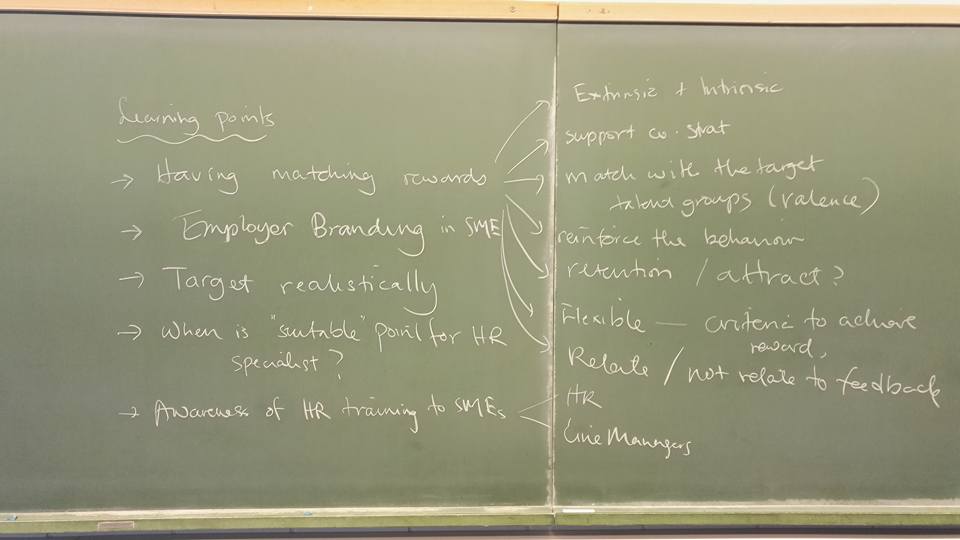 Learning points
→ Having matching rewards
→ Employer Branding in SME
→ Target realistically
→ When is "suitable" point for HR
specialist?
→ Awareness of HR training to SMEs
Extrinsic + Intrinsic
support co. strat
match with the target
talent groups (valence)
reinforce the behaviour
retention / attract?
Flexible — criteria to achieve
reward,
Relate / not relate to feedback
HR
Line Managers